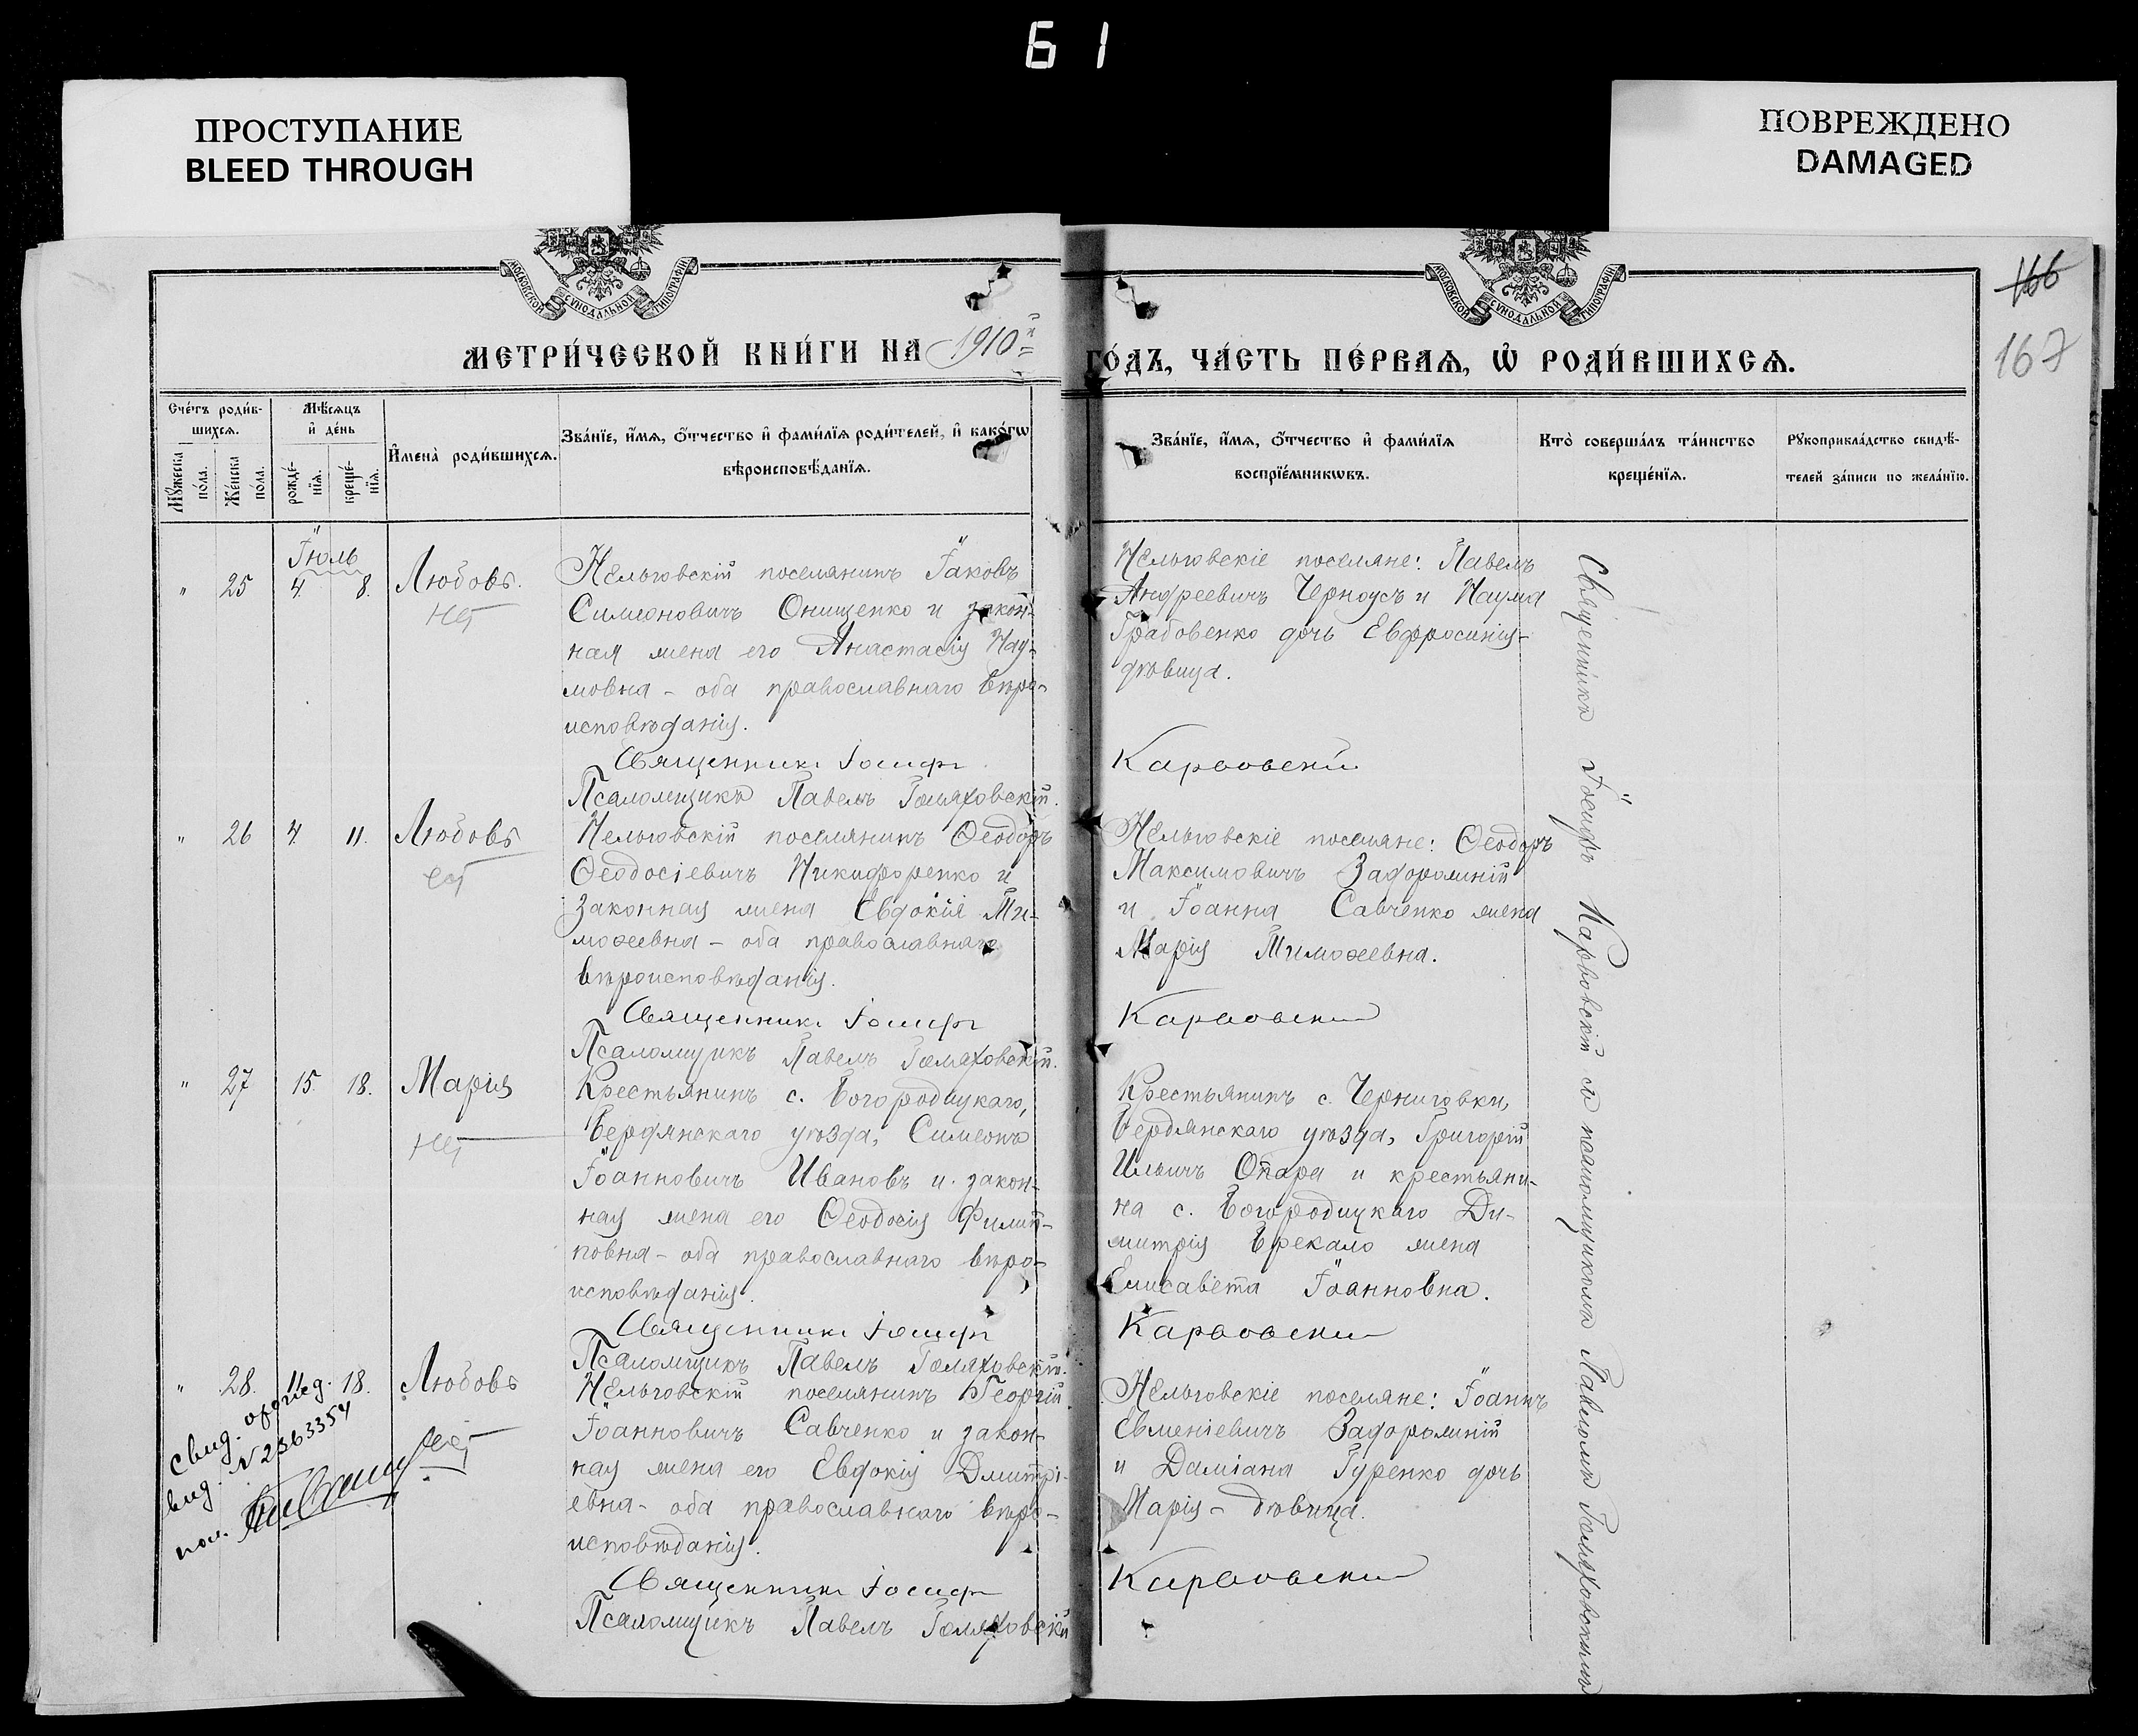 61
ПРОСТУПАНИЕ
BLEED THROUGH
ПОВРЕЖДЕНО
DAMAGED
МОСКОВСКОЙ СѴНОДАЛЬНОЙ ТИПОГРАФІИ
МОСКОВСКОЙ СѴНОДАЛЬНОЙ ТИПОГРАФІИ
166
167
МЕТРИ́ЧЕСКОЙ КНИ́ГИ НА 1910й
ГО́ДЪ, ЧА́СТЬ ПЕ́РВАѦ, Ѡ҆ РОДИ́ВШИХСѦ.
Сче́тъ роди́в-
шихсѧ.
Мꙋ́жеска по́ла.
Же́нска по́ла.
Мѣ́сѧцъ
и҆ де́нь
рожде́-
нїѧ.
креще́-
нїѧ.
И҆мена̀ роди́вшихсѧ.
Зва́нїе, и҆́мѧ, ѻ҆́тчество и҆ фами́лїѧ роди́телей, и҆ како́гѡ
вѣроисповѣ́данїѧ.
Зва́нїе, и҆́мѧ, ѻ҆́тчество и҆ фами́лїѧ
воспрїе́мникѡвъ.
Кто̀ соверша́лъ та́инство
креще́нїѧ.
Рꙋкоприкла́дство свидѣ́-
телей за́писи по жела́нїю.
Іюль
" 25 4. 8. Любовь.
нет
Нельговскій поселянинъ Іаковъ
Симеоновичъ Онищенко и закон-
ная жена его Анастасія Нау-
мовна - оба православнаго вѣро-
исповѣданія.
Священникъ Іосифъ
Псаломщикъ Павелъ Голяховскій.
Нельговскіе поселяне: Павелъ
Андреевичъ Черноусъ и Наума
Грабовенко дочь Евфросинія-
дѣвица.
Карвовскій
" 26 4. 11. Любовь
Нельговскій поселянинъ Ѳеодоръ
Ѳеодосіевичъ Никифоренко и
законная жена Евдокія Ти-
моѳеевна - оба православнаго
вѣроисповѣданія.
Священникъ Іосифъ
Псаломщикъ Павелъ Голяховскій.
Нельговскіе поселяне: Ѳеодоръ
Максимовичъ Задорожній
и Іоанна Савченко жена
Марія Тимоѳеевна.
Карвовскій
" 27 15. 18. Марія
нет
Крестьянинъ с. Богородицкаго,
Бердянскаго уѣзда, Симеонъ
Іоанновичъ Ивановъ и закон-
ная жена его Ѳеодосія Филип-
повна - оба православнаго вѣро-
исповѣданія.
Священникъ Іосифъ
Псаломщикъ Павелъ Голяховскій.
Крестьянинъ с. Черниговки,
Бердянскаго уѣзда, Григорій
Ильичъ Опара и крестьяни-
на с. Богородицкаго Ди-
митрія Брекало жена
Елисавета Іоанновна.
Карвовскій
" 28. 11. 18. Любовь
Свид.
вид. N 2363354
Нельговскій поселянинъ Георгій
Іоанновичъ Савченко и закон-
ная жена его Евдокія Дмитрі-
евна - оба православнаго вѣро-
исповѣданія.
Священникъ Іосифъ
Псаломщикъ Павелъ Голяховскій
Нельговскіе поселяне: Іоаннъ
Евменіевичъ Задорожній
и Даміана Гуренко дочь
Марія - дѣвица.
Карвовскій
Священникъ Іосифъ Карвовскій съ псаломщикомъ Павломъ Голяховскимъ